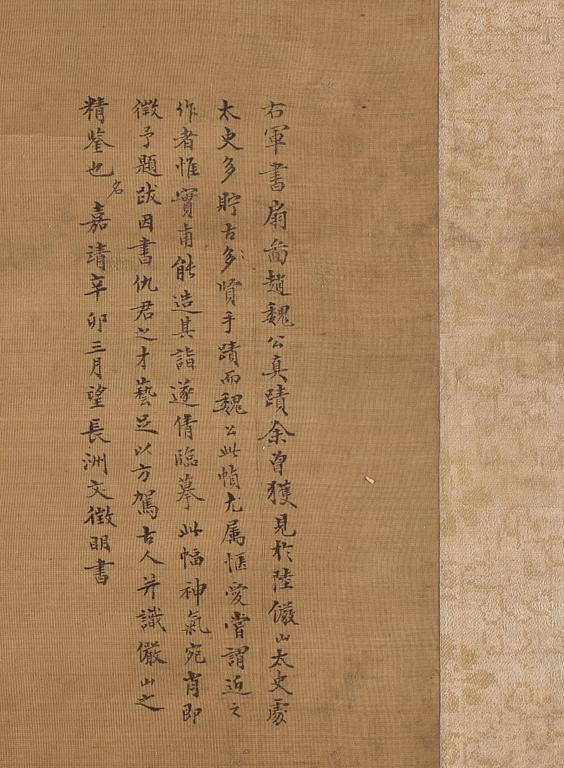 右軍書扇面趙魏公真蹟余曾獲見於陸儼山太史處
太史多貯古多賢手蹟而魏公此幀尤属愜愛嘗謂近之
作者惟實甫能造其詣遂倩臨摹此幅神氣宛肖即
徵予題跋因書仇君之才藝足以方駕古人并識儼山之
精鉴也 名 嘉靖辛卯三月望長洲文徵明書